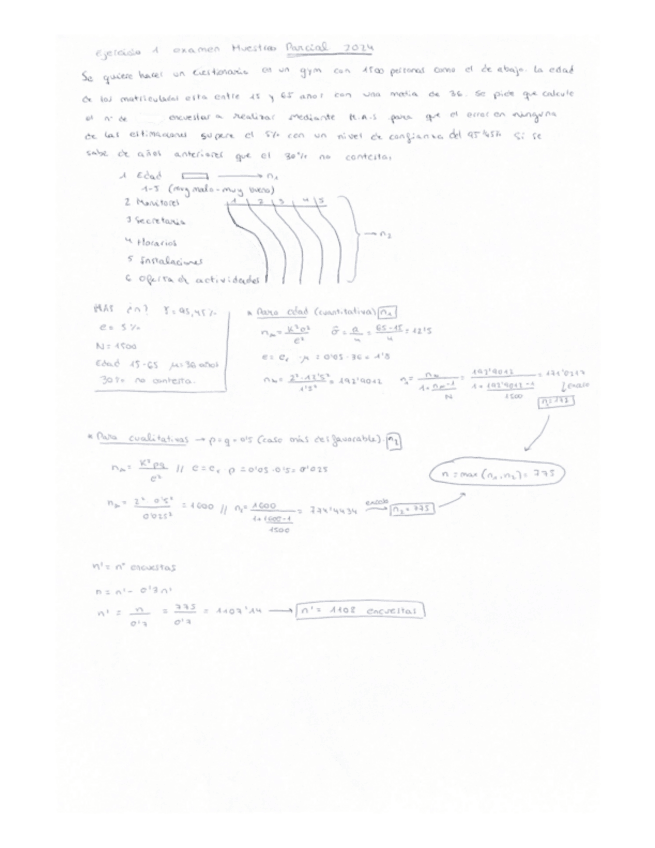 Ejercicio 1 examen Muestreo Parcial 2024
Se quiere hacer un cuestionario en un gym con 1500 personas como el de abajo. La edad
de los matriculados esta entre 15 y 65 años con una media de 36. Se pide que calcule
el nº de encuestas a realizar mediante M.A.S para que el error en ninguna
de las estimaciones supere el 5% con un nivel de confianza del 95'45% si se
sabe de años anteriores que el 30% no contesta.
1 Edad → n₁
1-5 (muy malo - muy bueno)
2 Monitores 1 2 3 4 5
3 Secretaria
4 Horarios → n₂
5 Instalaciones
6 Oferta de actividades
MAS ¿n? γ = 95,45%
e = 5%
N = 1500
Edad 15-65 μ = 36 años
30% no contesta.
* Para edad (cuantitativa) n₁
n∞ = K²σ²/e² σ̂ = R/4 = 65-15/4 = 12'5
e = e₁ μ = 0'05 · 36 = 1'8
n∞ = 2² · 12'5²/1'8² = 192'9012 n₁ = n∞/1 + n∞-1/N = 192'9012/1 + 192'9012-1/1500 = 171'0217
n₁ = 172
* Para cualitativas → p = q = 0'5 (caso más desfavorable) n₂
n∞ = K²pq/e² // e = e₁ p = 0'05 · 0'5 = 0'025
n = max (n₁, n₂) = 775
n∞ = 2² · 0'5²/0'025² = 1600 // n₂ = 1600/1 + 1600-1/1500 = 774'4434 exceso → n₂ = 775
n' = nº encuestas
n = n' - 0'3n'
n' = n/0'7 = 775/0'7 = 1107'14 → n' = 1108 encuestas